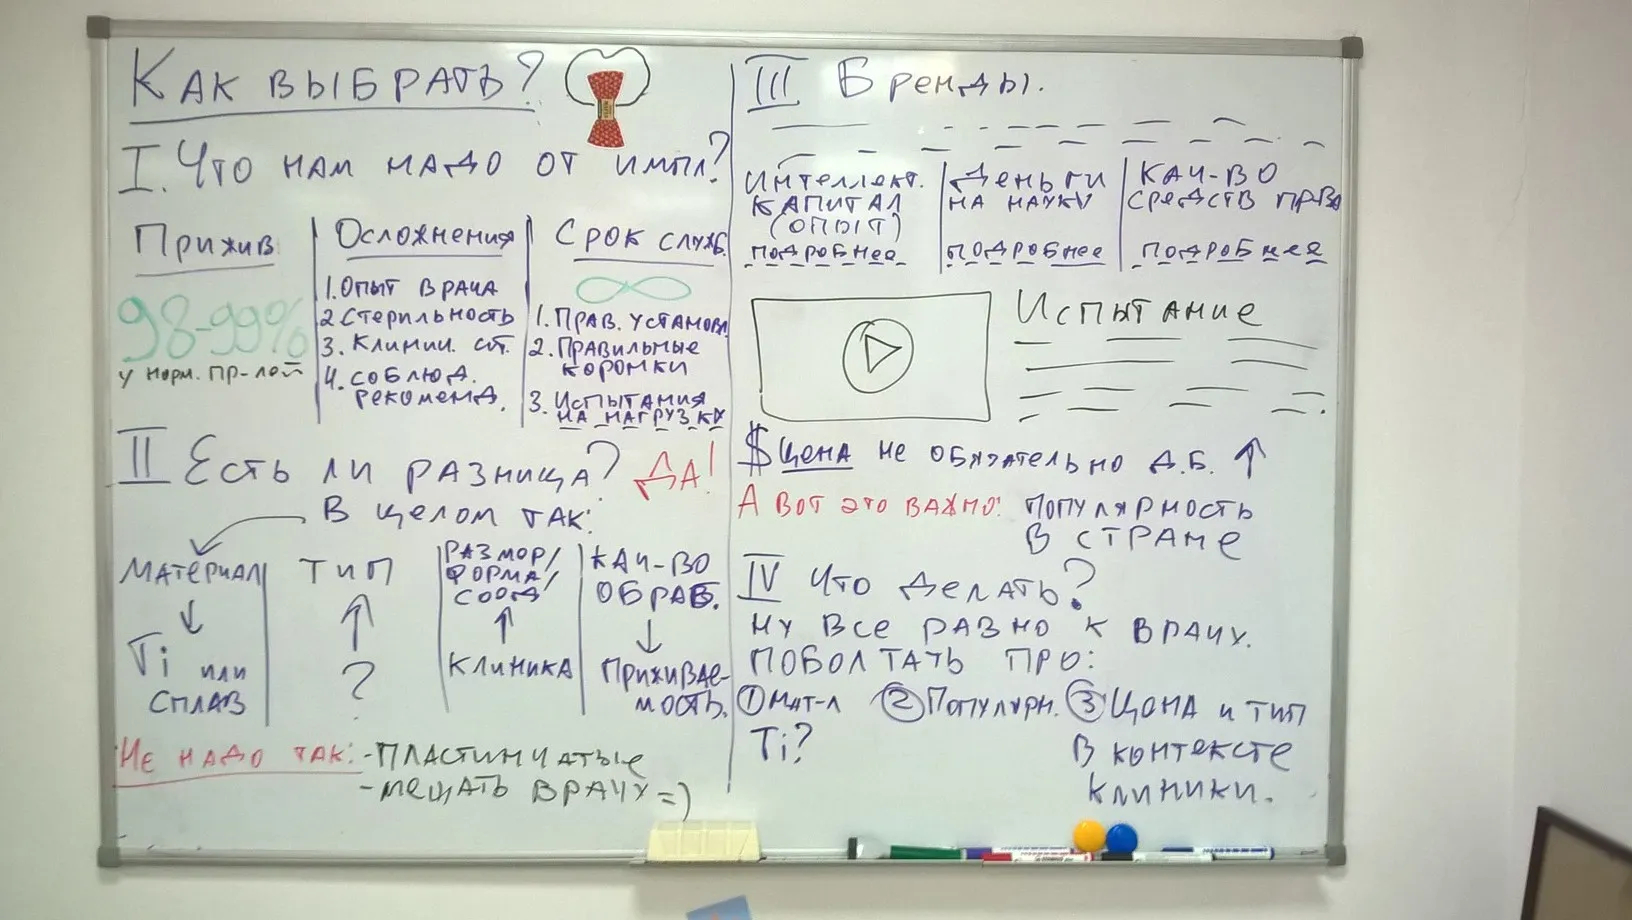 Как выбрать?
I. Что нам надо от импл?
Прижив.
98-99%
у норм. пр-лей
Осложнения
1. Опыт врача
2 Стерильность
3. Клинич. сит.
4. соблюд.
рекоменд.
Срок служб.
∞
1. Прав. установ.
2. Правильные
коронки
3. Испытания
на нагрузку
II Есть ли разница? Да!
В целом так:
Материал
↓
Ti или
сплав
Тип
↑
?
размер/
форма/
соед/
↑
клиника
кач-во
обраб.
↓
Приживае-
мость.
Не надо так: -пластинчатые
-мешать врачу =)
III Бренды.
Интеллект.
капитал
(опыт)
подробнее
Деньги
на науку
подробнее
кач-во
средств пр-ва
подробнее
Испытание
$ Цена не обязательно д.б. ↑
А вот это важно: популярность
в стране
IV Что делать?
Ну все равно к врачу.
поболтать про:
① мат-л ② Популярн. ③ Цена и тип
Ti?
в контексте
клиники.